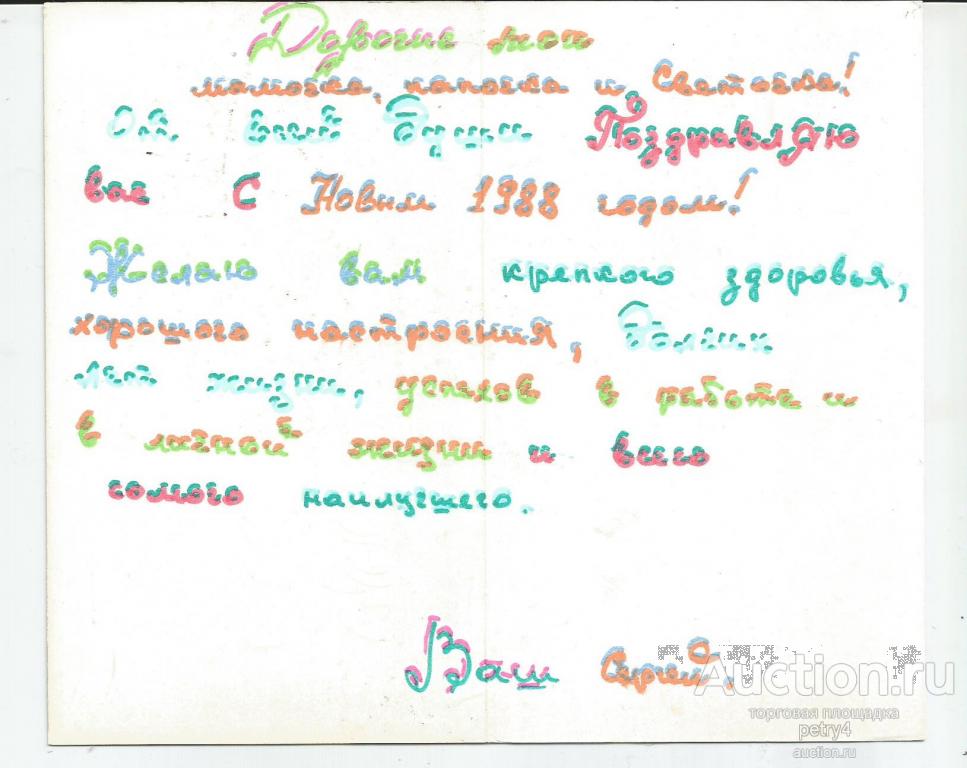 Дорогие мои
мамочка, папочка и Светочка!
От всей души Поздравляю
вас С Новым 1988 годом!
Желаю вам крепкого здоровья,
хорошего настроения, больших
лет жизни, успехов в работе и
в личной жизни и всего
самого наилучшего.
Ваш Сергей.
Auction.ru
торговая площадка
petry4
auction.ru